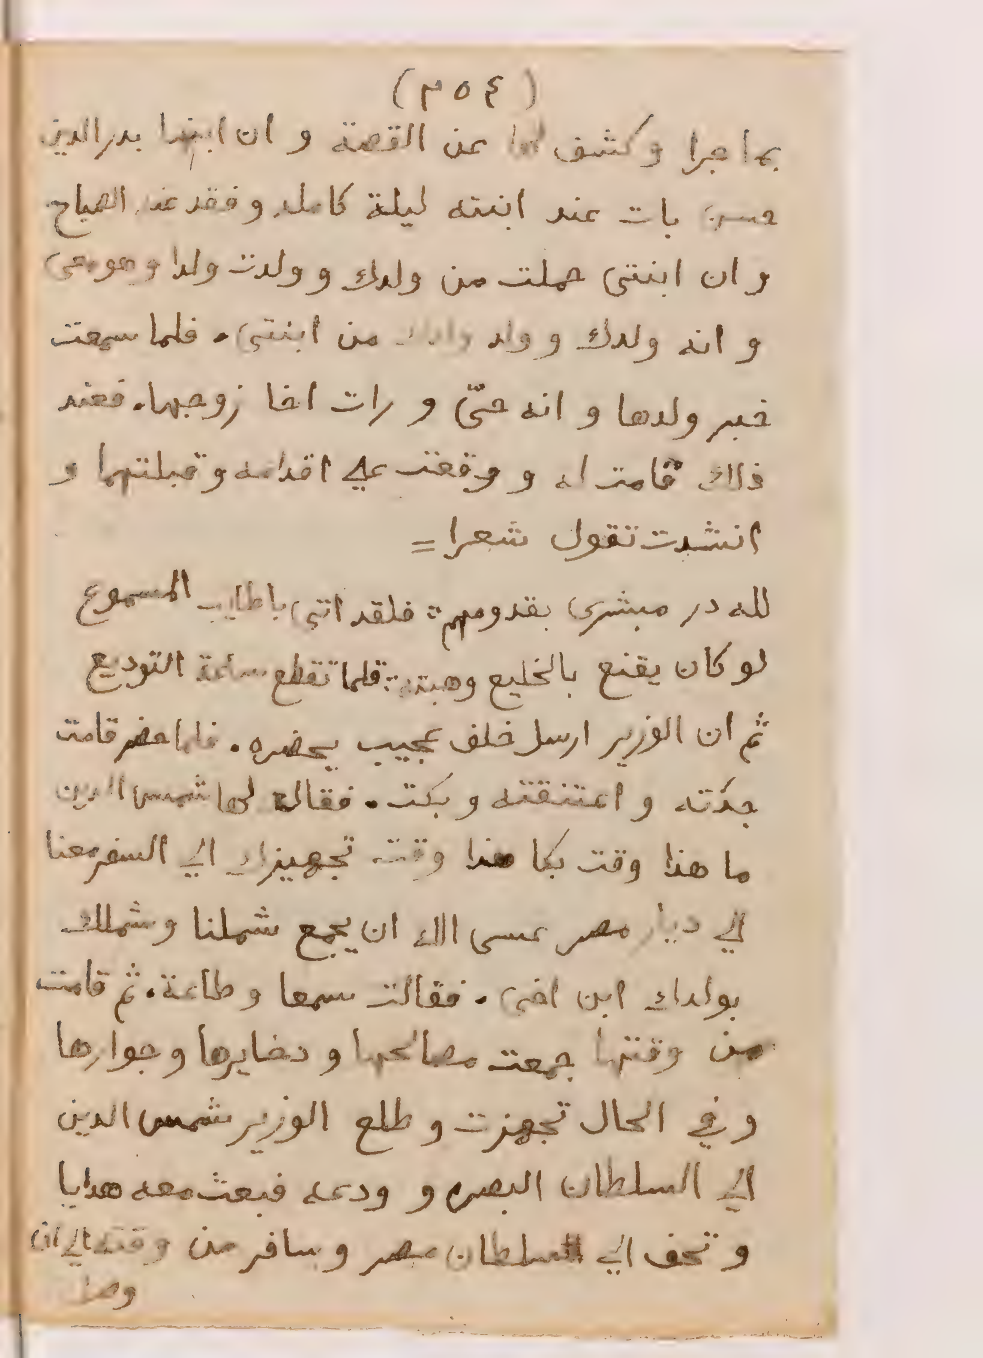 (٣٥٤)
بما جرا وكشف لها عن القصة و ان ابنها بدر الدين
حسن بات عند ابنته ليلة كامله و فقد عند الصباح.
و ان ابنتى حملت من ولدك و ولدت ولدا و هو معى
و انه ولدك و ولد ولدك من ابنتى. فلما سمعت
خبر ولدها و انه حىّ و رات اخا زوجها. فعند
ذلك قامت له و وقعت علي اقدامه و قبلتهما و
انشدت تقول شعرا =
لله در مبشرى بقدومهم: فلقد اتى باطايب المسموع
لو كان يقنع بالخليع وهبته: قلما تقطع ساعة التوديع
ثم ان الوزير ارسل خلف عجيب يحضره. فلما حضر قامت
جدّته و اعتنقته و بكت. فقال لها شمس الدين
ما هذا وقت بكا هذا وقت تجهيزك الي السفر معنا
الي ديار مصر عسى الله ان يجمع شملنا و شملك
بولدك ابن اخى. فقالت سمعا و طاعة. ثم قامت
من وقتها جمعت مصالحها و دخايرها و جوارها
و في الحال تجهزت و طلع الوزير شمس الدين
الي السلطان البصره و ودعه فبعث معه هدايا
و تحف الي السلطان مصر و سافر من وقته الي ان
وصل